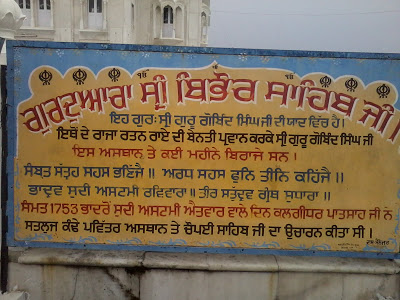 ਗੁਰਦੁਆਰਾ ਸ਼੍ਰੀ ਬਿਭੌਰ ਸਾਹਿਬ ਜੀ
ਇਹ ਗੁਰ: ਸ਼੍ਰੀ ਗੁਰੂ ਗੋਬਿੰਦ ਸਿੰਘ ਜੀ ਦੀ ਯਾਦ ਵਿੱਚ ਹੈ।
ਇਥੋਂ ਦੇ ਰਾਜਾ ਰਤਨ ਰਾਏ ਦੀ ਬੇਨਤੀ ਪ੍ਰਵਾਨ ਕਰਕੇ ਸ਼੍ਰੀ ਗੁਰੂ ਗੋਬਿੰਦ ਸਿੰਘ ਜੀ
ਇਸ ਅਸਥਾਨ ਤੇ ਕਈ ਮਹੀਨੇ ਬਿਰਾਜੇ ਸਨ।
ਸੰਬਤ ਸਤ੍ਰਹ ਸਹਸ ਭਣਿਜੈ॥ ਅਰਧ ਸਹਸ ਫੁਨਿ ਤੀਨਿ ਕਹਿੰਜੈ॥
ਭਾਦ੍ਰਵ ਸੁਦੀ ਅਸਟਮੀ ਰਵਿਵਾਰਾ॥ ਤੀਰ ਸਤੁੱਦ੍ਰਵ ਗ੍ਰੰਥ ਸੁਧਾਰਾ॥
ਸਿਮਤ 1753 ਭਾਦਰੋਂ ਸੁਦੀ ਅਸਟਮੀ ਐਤਵਾਰ ਵਾਲੇ ਦਿਨ ਕਲਗੀਧਰ ਪਾਤਸਾਹ ਜੀ ਨੇ
ਸਤਲੁਜ ਕੰਢੇ ਪਵਿੱਤਰ ਅਸਥਾਨ ਤੇ ਚੌਪਈ ਸਾਹਿਬ ਜੀ ਦਾ ਉਚਾਰਨ ਕੀਤਾ ਸੀ।